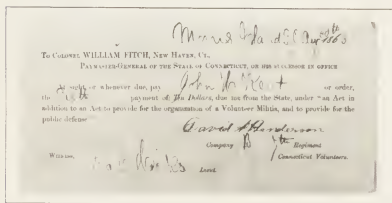 Morris Island SC Aug 1863
TO COLONEL WILLIAM FITCH, NEW HAVEN, CT.,
PAYMASTER-GENERAL OF THE STATE OF CONNECTICUT, OR HIS SUCCESSOR IN OFFICE
At sight, or whenever due, pay John W. Kent or order,
the payment of Ten Dollars, due me from the State, under "an Act in
addition to an Act to provide for the organization of a Volunteer Militia, and to provide for the
public defense
David A Henderson
Company D 7th Regiment
Witness, Connecticut Volunteers.
Lieut.